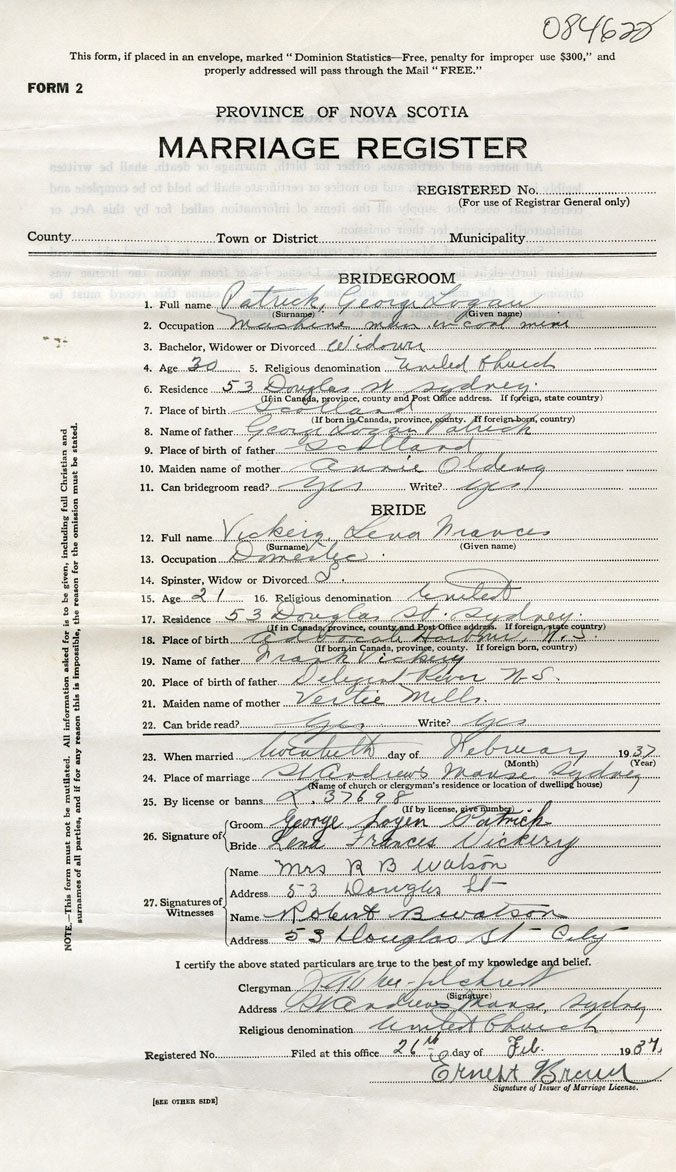 084622
This form, if placed in an envelope, marked "Dominion Statistics—Free, penalty for improper use $300," and
properly addressed will pass through the Mail "FREE."
FORM 2
PROVINCE OF NOVA SCOTIA
MARRIAGE REGISTER
REGISTERED No.
(For use of Registrar General only)
County Town or District Municipality
BRIDEGROOM
1. Full name Patrick, George Logan
(Surname) (Given name)
2. Occupation Machine man in coal mine
3. Bachelor, Widower or Divorced Widower
4. Age 30 5. Religious denomination United Church
6. Residence 53 Douglas St Sydney.
(If in Canada, province, county and Post Office address. If foreign, state country)
7. Place of birth Scotland
(If born in Canada, province, county. If foreign born, country)
8. Name of father George Logan Patrick
9. Place of birth of father Scotland
10. Maiden name of mother Annie
11. Can bridegroom read? Yes Write? Yes
BRIDE
12. Full name Vickery, Lena Frances
(Surname) (Given name)
13. Occupation Domestic.
14. Spinster, Widow or Divorced S.
15. Age 21 16. Religious denomination United
17. Residence 53 Douglas St. Sydney.
(If in Canada, province, county and Post Office address. If foreign, state country)
18. Place of birth Advocate Harbour, N.S.
(If born in Canada, province, county. If foreign born, country)
19. Name of father Frank Vickery
20. Place of birth of father Diligent River N.S.
21. Maiden name of mother Vertie Mills.
22. Can bride read? Yes Write? Yes
23. When married twentieth day of February 1937
(Month) (Year)
24. Place of marriage St Andrew's Manse, Sydney
(Name of church or clergyman's residence or location of dwelling house)
25. By license or banns L. 37698
(If by license, give number)
26. Signature of
Groom George Logan Patrick
Bride Lena Frances Vickery
27. Signatures of Witnesses
Name Mrs R B Watson
Address 53 Douglas St
Name Robert B Watson
Address 53 Douglas St City
I certify the above stated particulars are true to the best of my knowledge and belief.
Clergyman
(Signature)
Address St Andrew's Manse, Sydney
Religious denomination United Church
Registered No. Filed at this office 26th day of Feb. 1937.
Ernest
Signature of Issuer of Marriage License.
[SEE OTHER SIDE]
NOTE.—This form must not be mutilated. All information asked for is to be given, including full Christian and
surnames of all parties, and if for any reason this is impossible, the reason for the omission must be stated.